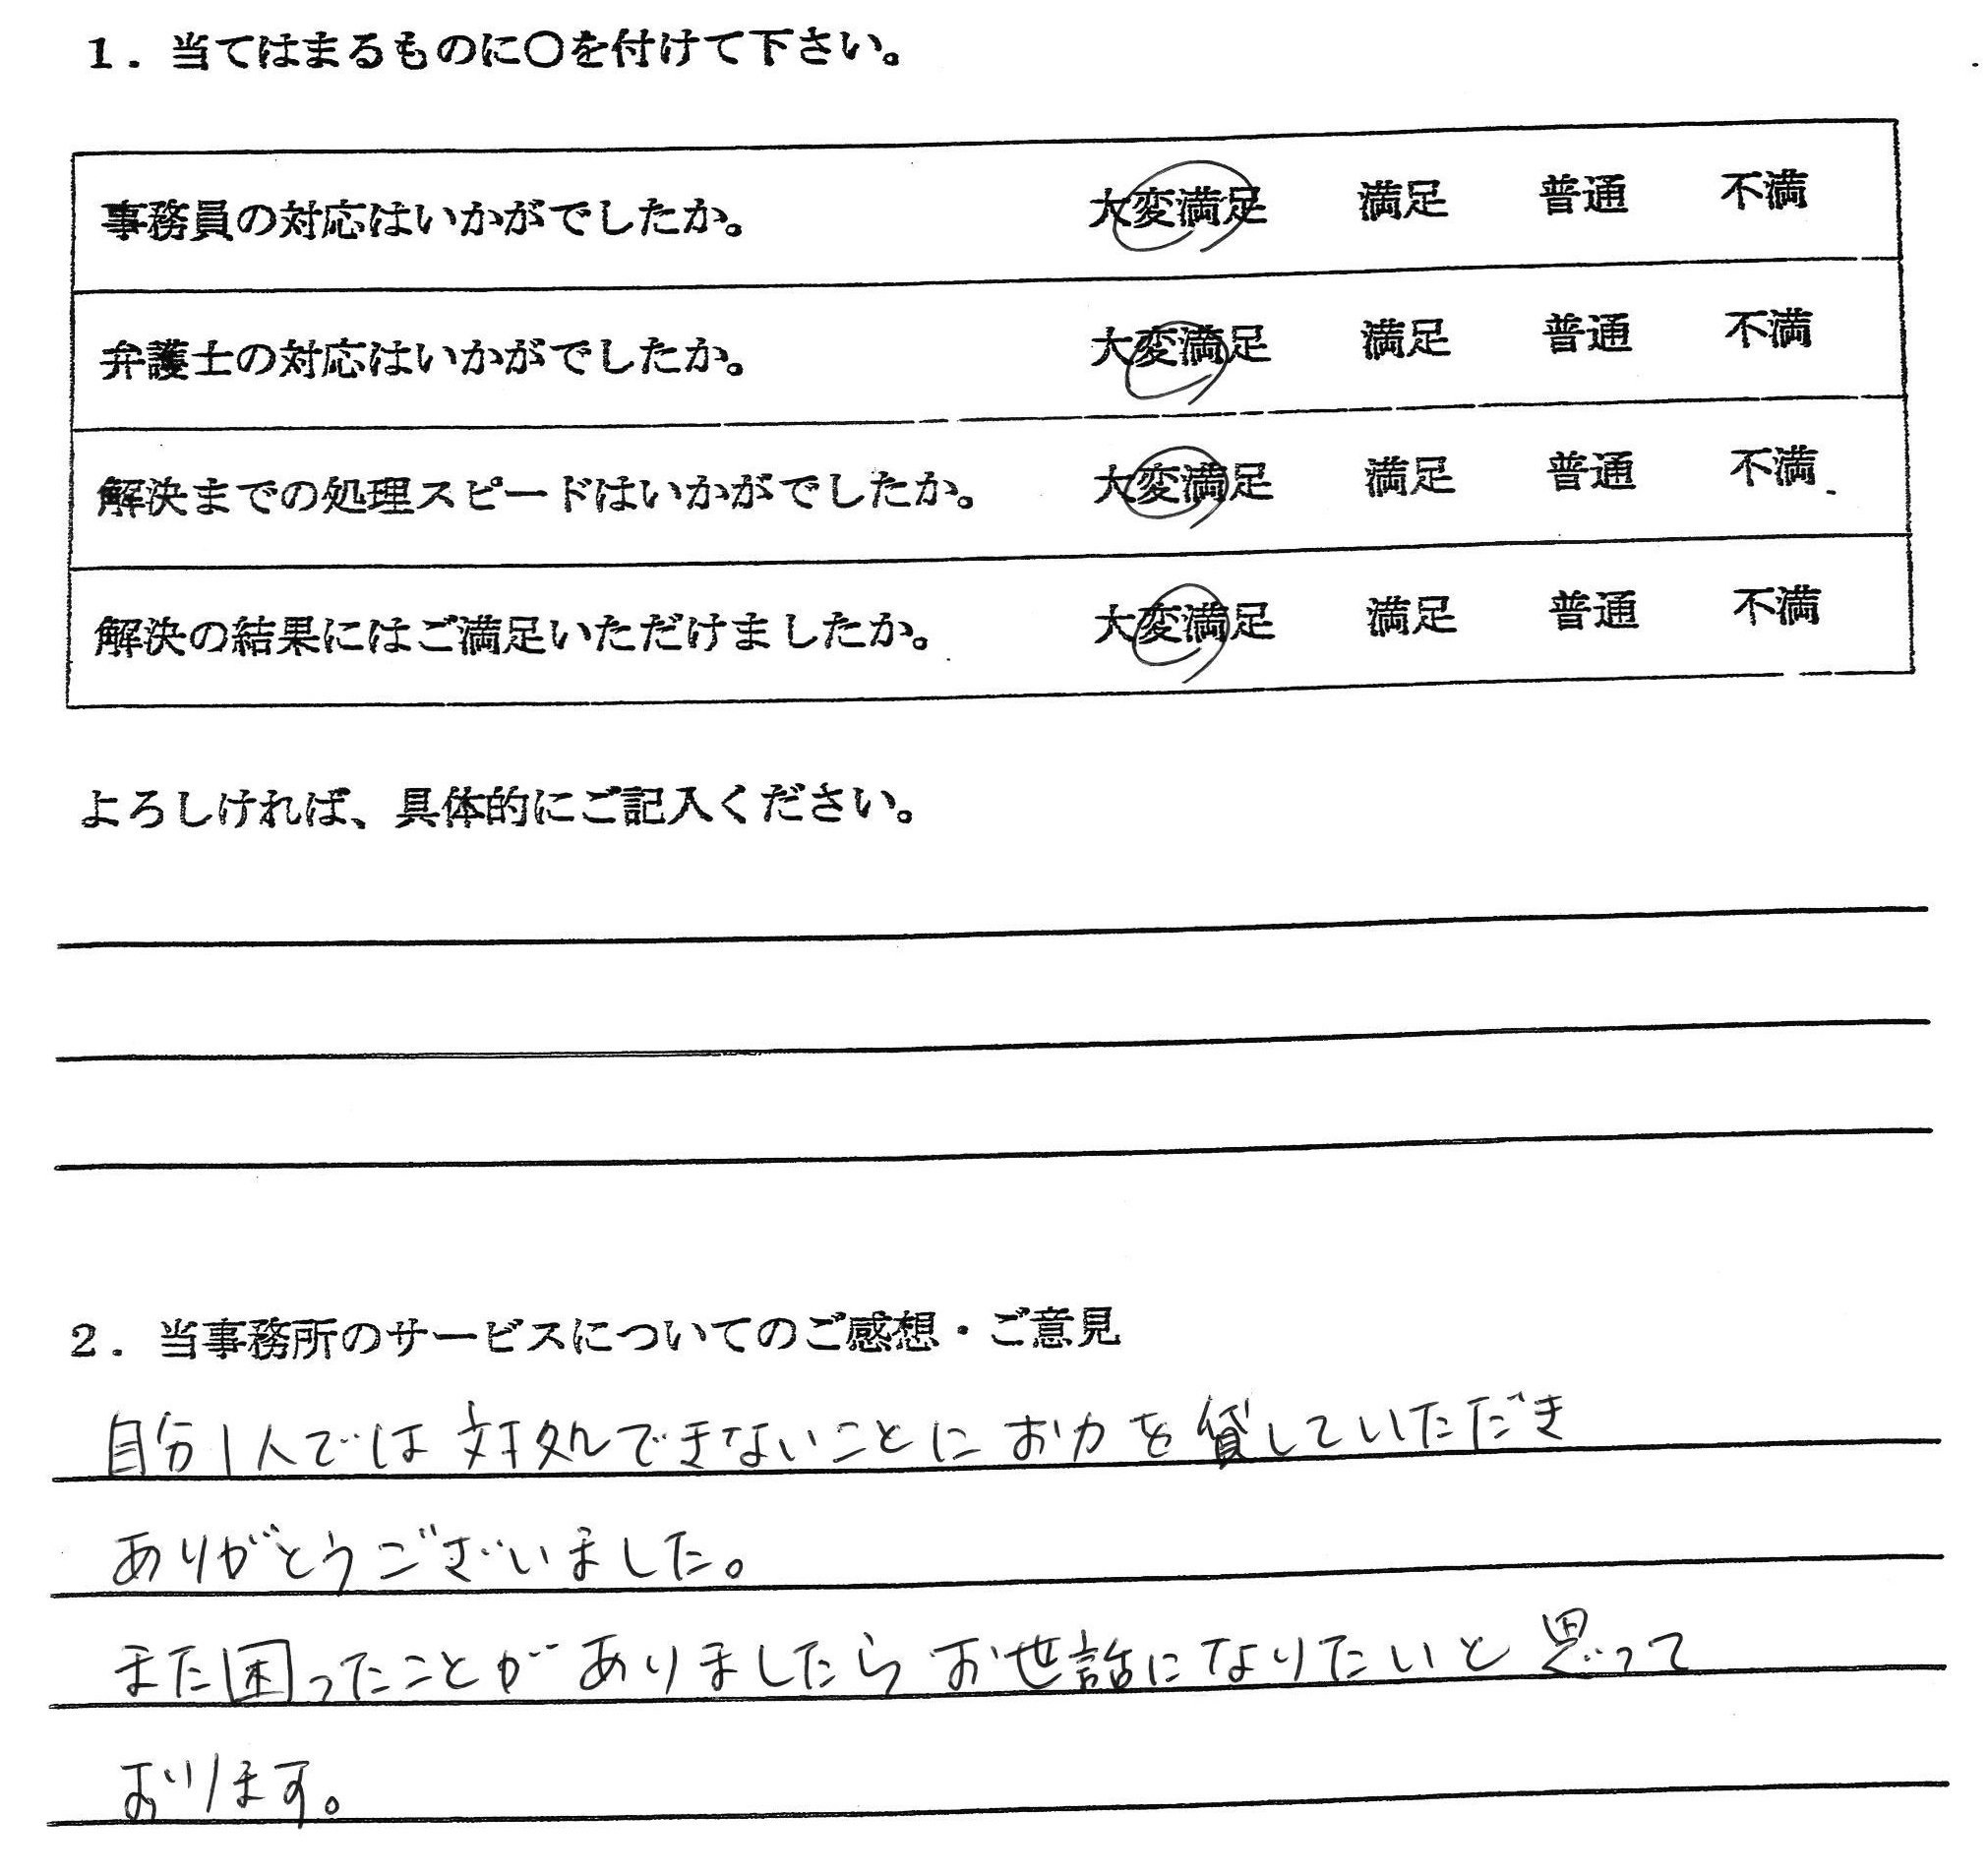 1．当てはまるものに〇を付けて下さい。
事務員の対応はいかがでしたか。 大変満足 満足 普通 不満
弁護士の対応はいかがでしたか。 大変満足 満足 普通 不満
解決までの処理スピードはいかがでしたか。 大変満足 満足 普通 不満
解決の結果にはご満足いただけましたか。 大変満足 満足 普通 不満
よろしければ、具体的にご記入ください。
2．当事務所のサービスについてのご感想・ご意見
自分1人では対処できないことにお力を貸していただき
ありがとうございました。
また困ったことがありましたらお世話になりたいと思って
おります。